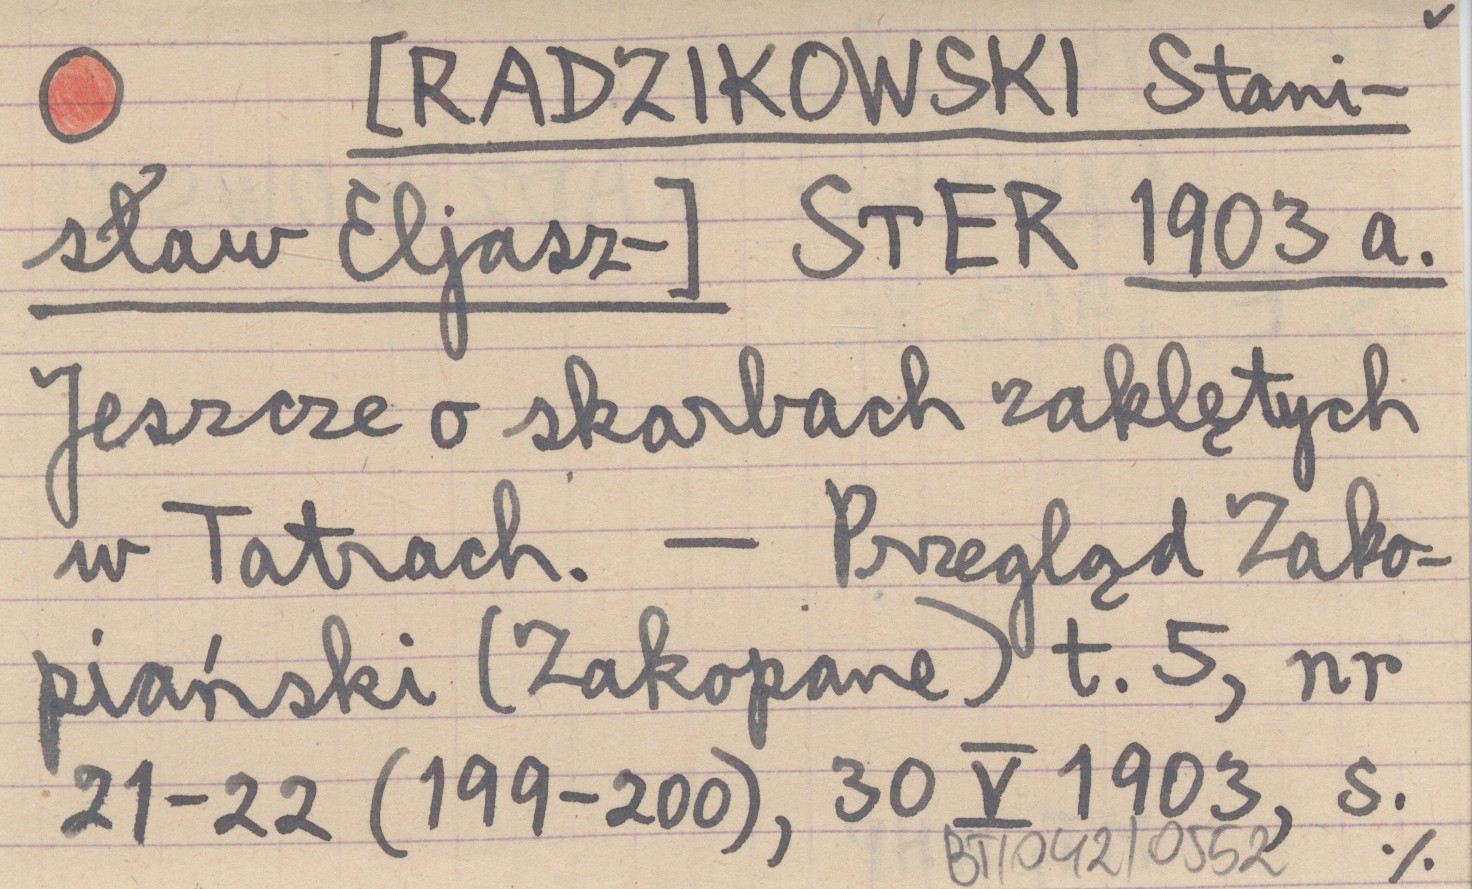 [RADZIKOWSKI Stani-
sław Eljasz-] STER 1903 a.
Jeszcze o skarbach zaklętych
w Tatrach. — Przegląd Zako-
piański (Zakopane) t. 5, nr
21-22 (199-200), 30 V 1903, s.
BT/042/0552 ./.